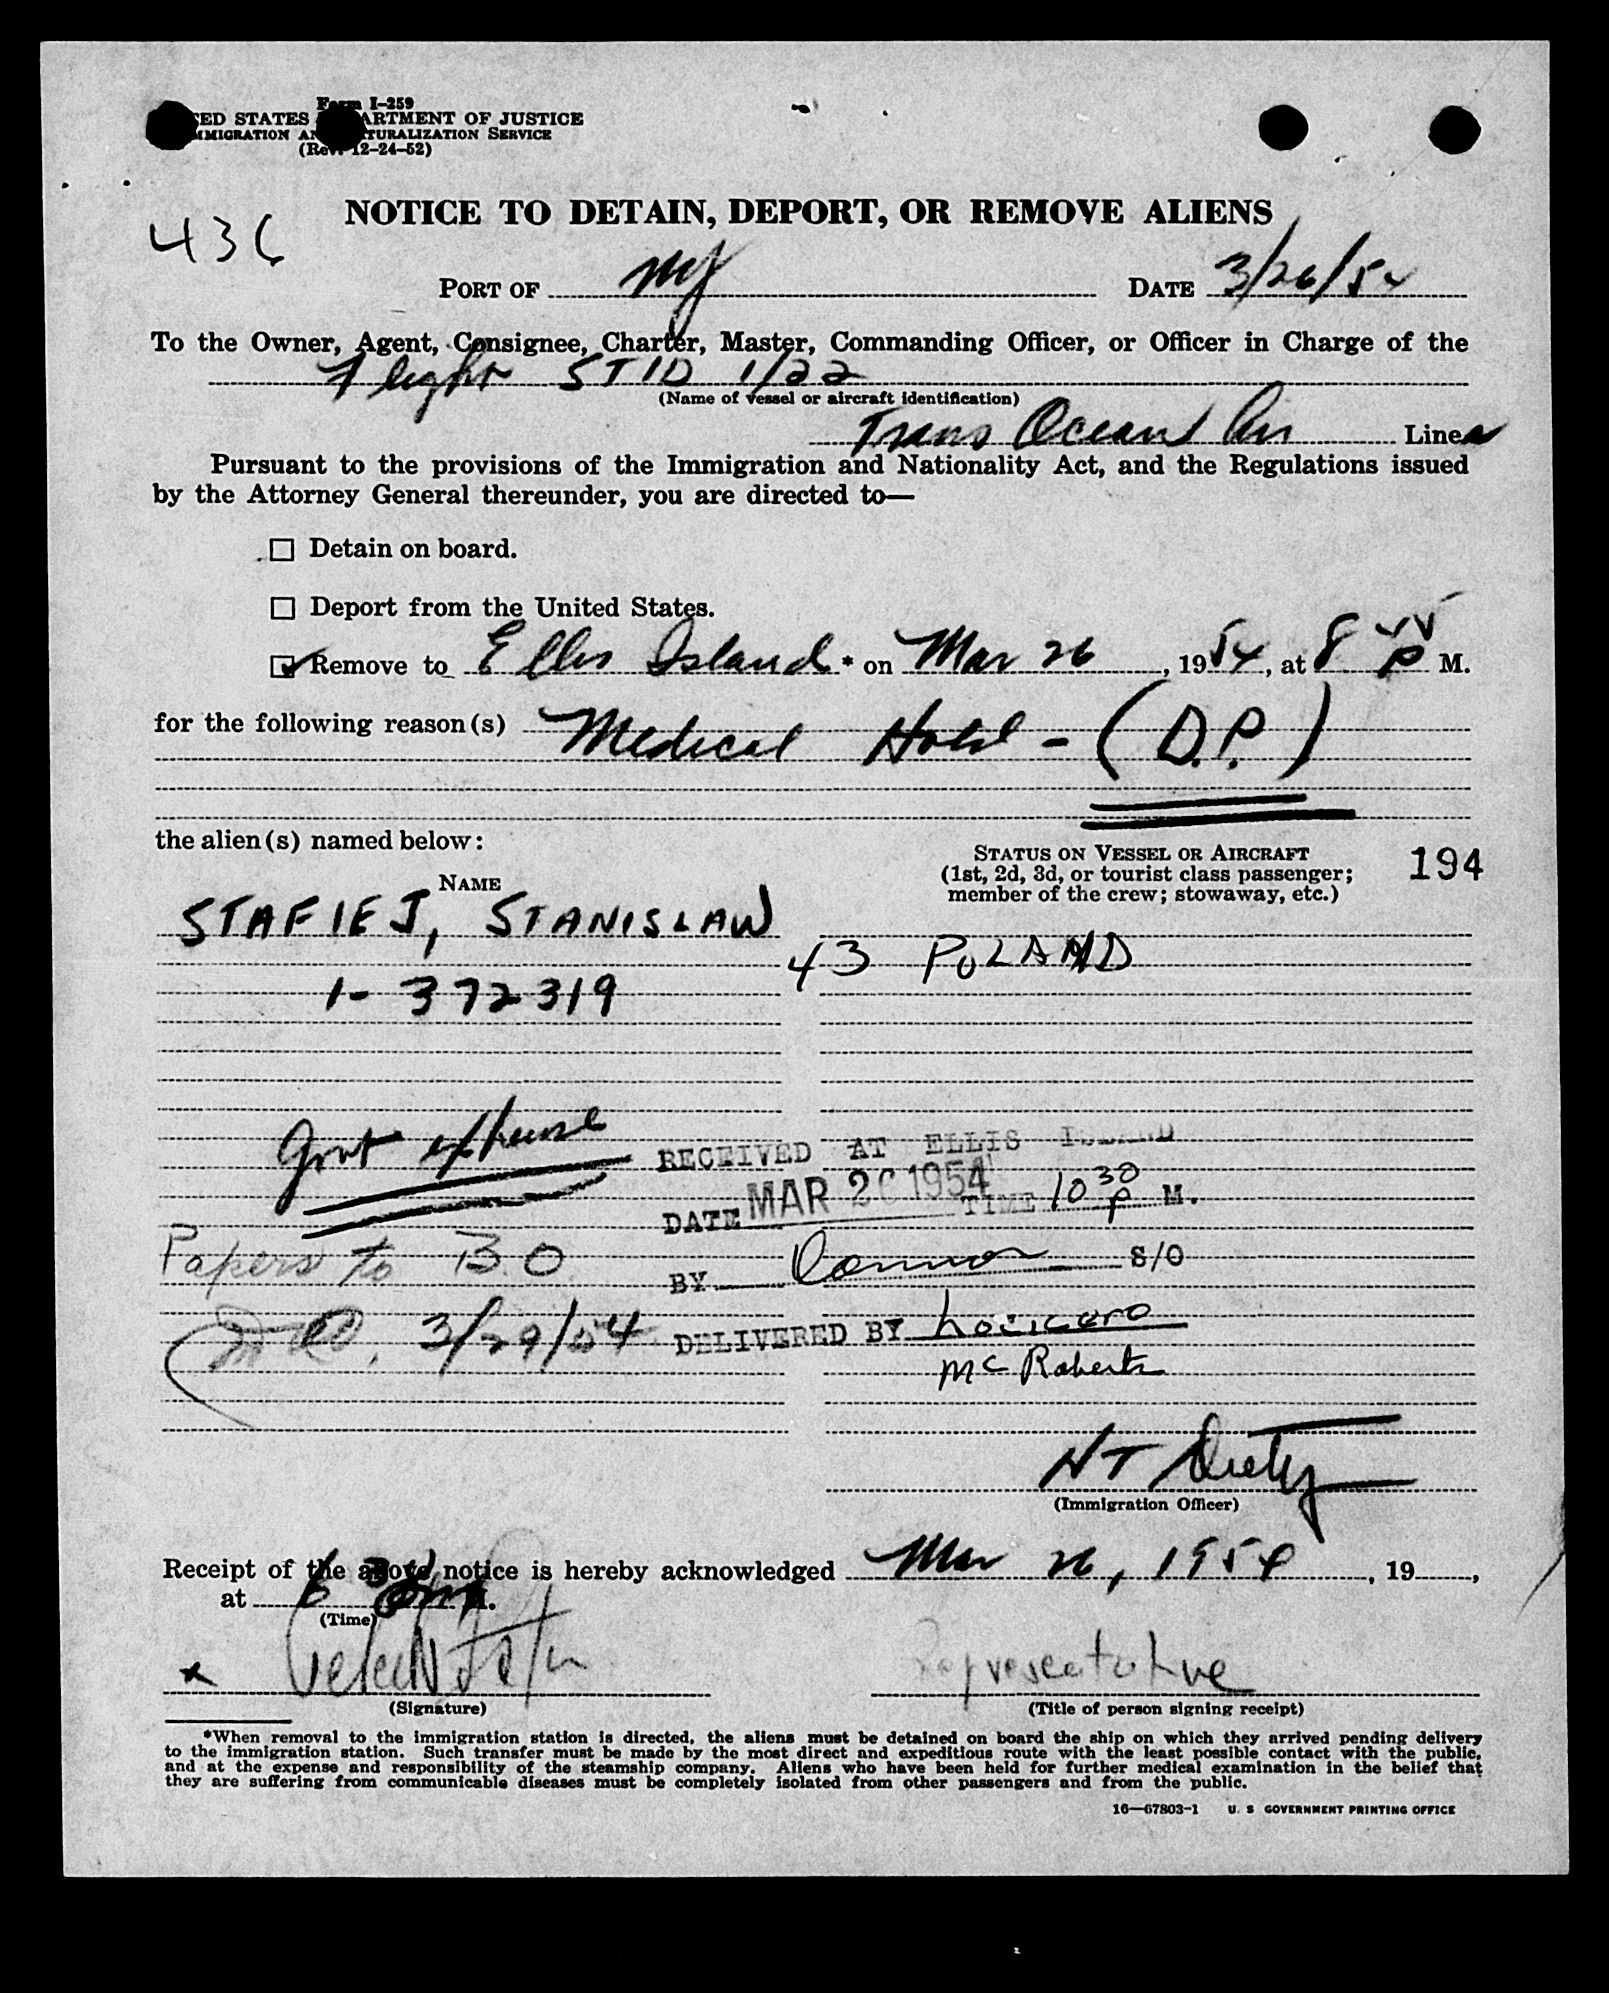 Form I-259
UNITED STATES DEPARTMENT OF JUSTICE
IMMIGRATION AND NATURALIZATION SERVICE
(Rev. 12-24-52)
NOTICE TO DETAIN, DEPORT, OR REMOVE ALIENS
436
PORT OF NY DATE 3/26/54
To the Owner, Agent, Consignee, Charter, Master, Commanding Officer, or Officer in Charge of the
Flight STID 1/22
(Name of vessel or aircraft identification)
Trans Ocean Air Lines
Pursuant to the provisions of the Immigration and Nationality Act, and the Regulations issued
by the Attorney General thereunder, you are directed to—
Detain on board.
Deport from the United States.
Remove to Ellis Island * on Mar 26, 1954, at 8 P M.
for the following reason(s) Medical Hold - (D.P.)
the alien(s) named below:
STATUS ON VESSEL OR AIRCRAFT
(1st, 2d, 3d, or tourist class passenger;
member of the crew; stowaway, etc.)
194
NAME
STAFIEJ, STANISLAW
43 POLAND
1-372319
Govt expense
RECEIVED AT ELLIS ISLAND
DATE MAR 26 1954 TIME 10 30 P M.
Papers to B.O.
BY Connor S/O
3/29/54
DELIVERED BY Locicero
McRoberts
(Immigration Officer)
Receipt of the above notice is hereby acknowledged Mar 26, 1954, 19
at M.
(Time)
x
Representative
(Signature)
(Title of person signing receipt)
*When removal to the immigration station is directed, the aliens must be detained on board the ship on which they arrived pending delivery
to the immigration station. Such transfer must be made by the most direct and expeditious route with the least possible contact with the public,
and at the expense and responsibility of the steamship company. Aliens who have been held for further medical examination in the belief that
they are suffering from communicable diseases must be completely isolated from other passengers and from the public.
16—67803-1 U. S. GOVERNMENT PRINTING OFFICE